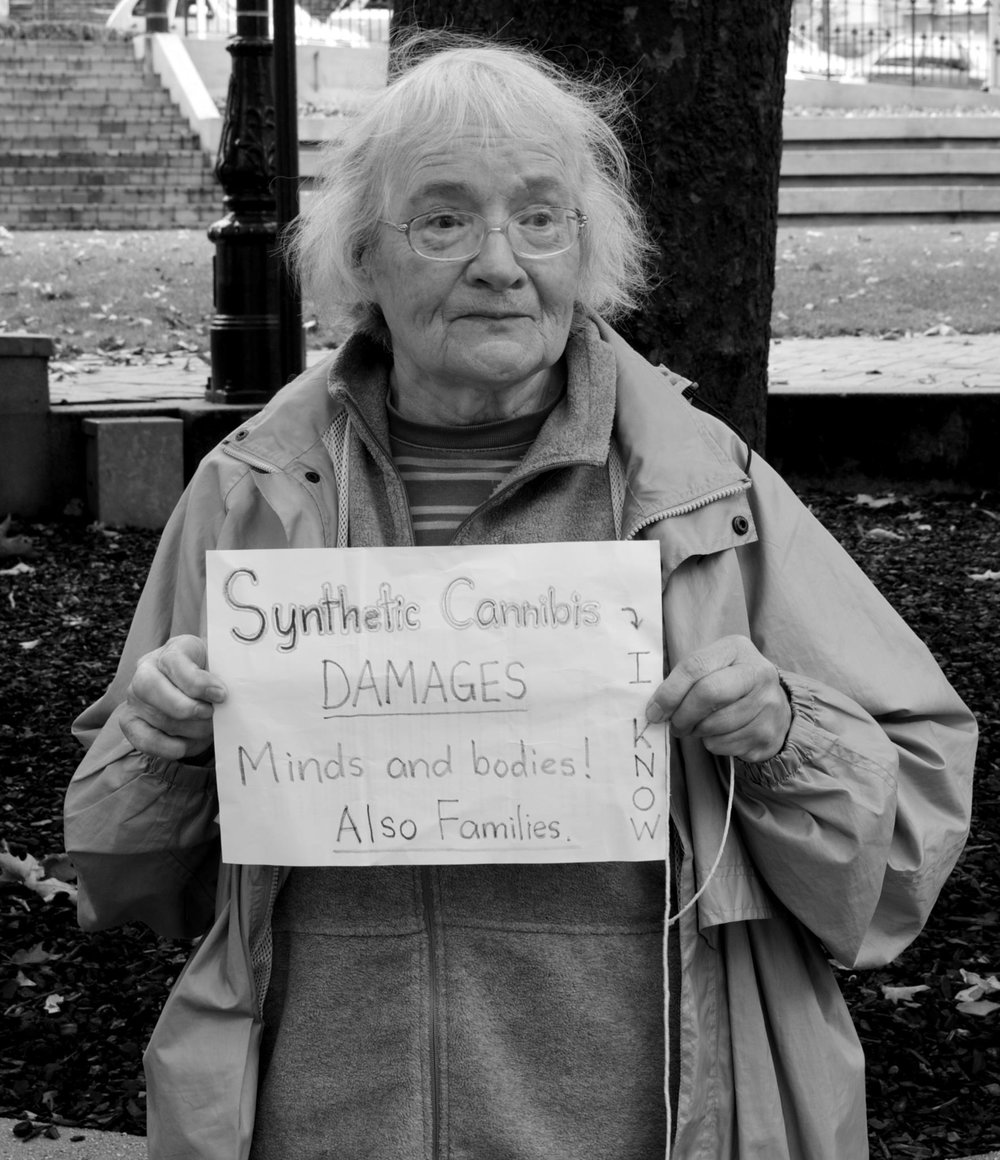 Synthetic Cannibis
DAMAGES
Minds and bodies!
Also Families.
I KNOW